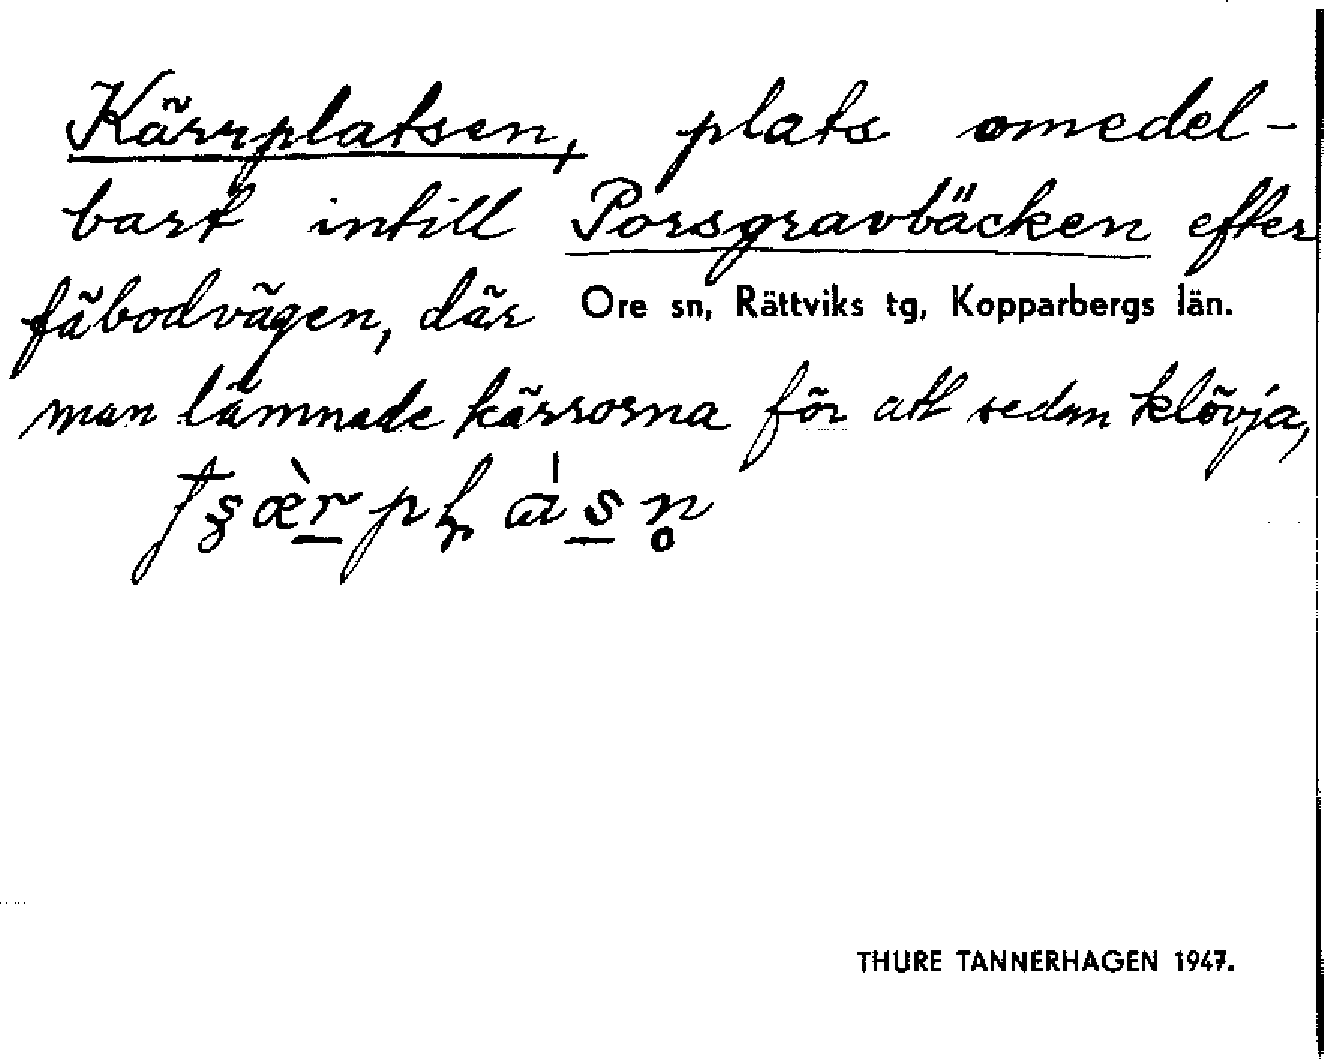 Kärrplatsen, plats omedel-
bart intill Porsgravbäcken efter
fäbodvägen, där
Ore sn, Rättviks tg, Kopparbergs län.
man lämnade kärrorna för att sedan klövja,
THURE TANNERHAGEN 1947.